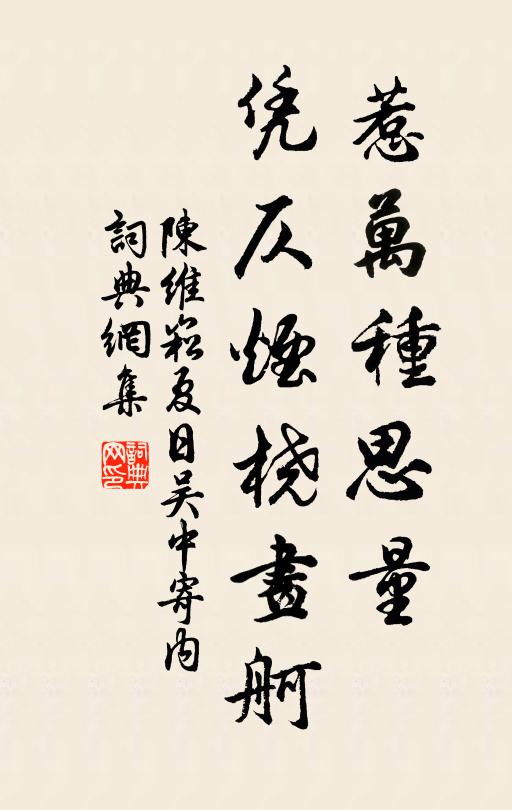 惹萬種思量
凭仄煙橈畫舸
陳維崧夏日吴中寄内
詞典網集
詞典網印